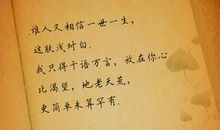 谁人又相信一世一生,
这肤浅对白.
我只得千语万言,放在你心
比渴望,地老天荒,
更简单未算罕有.